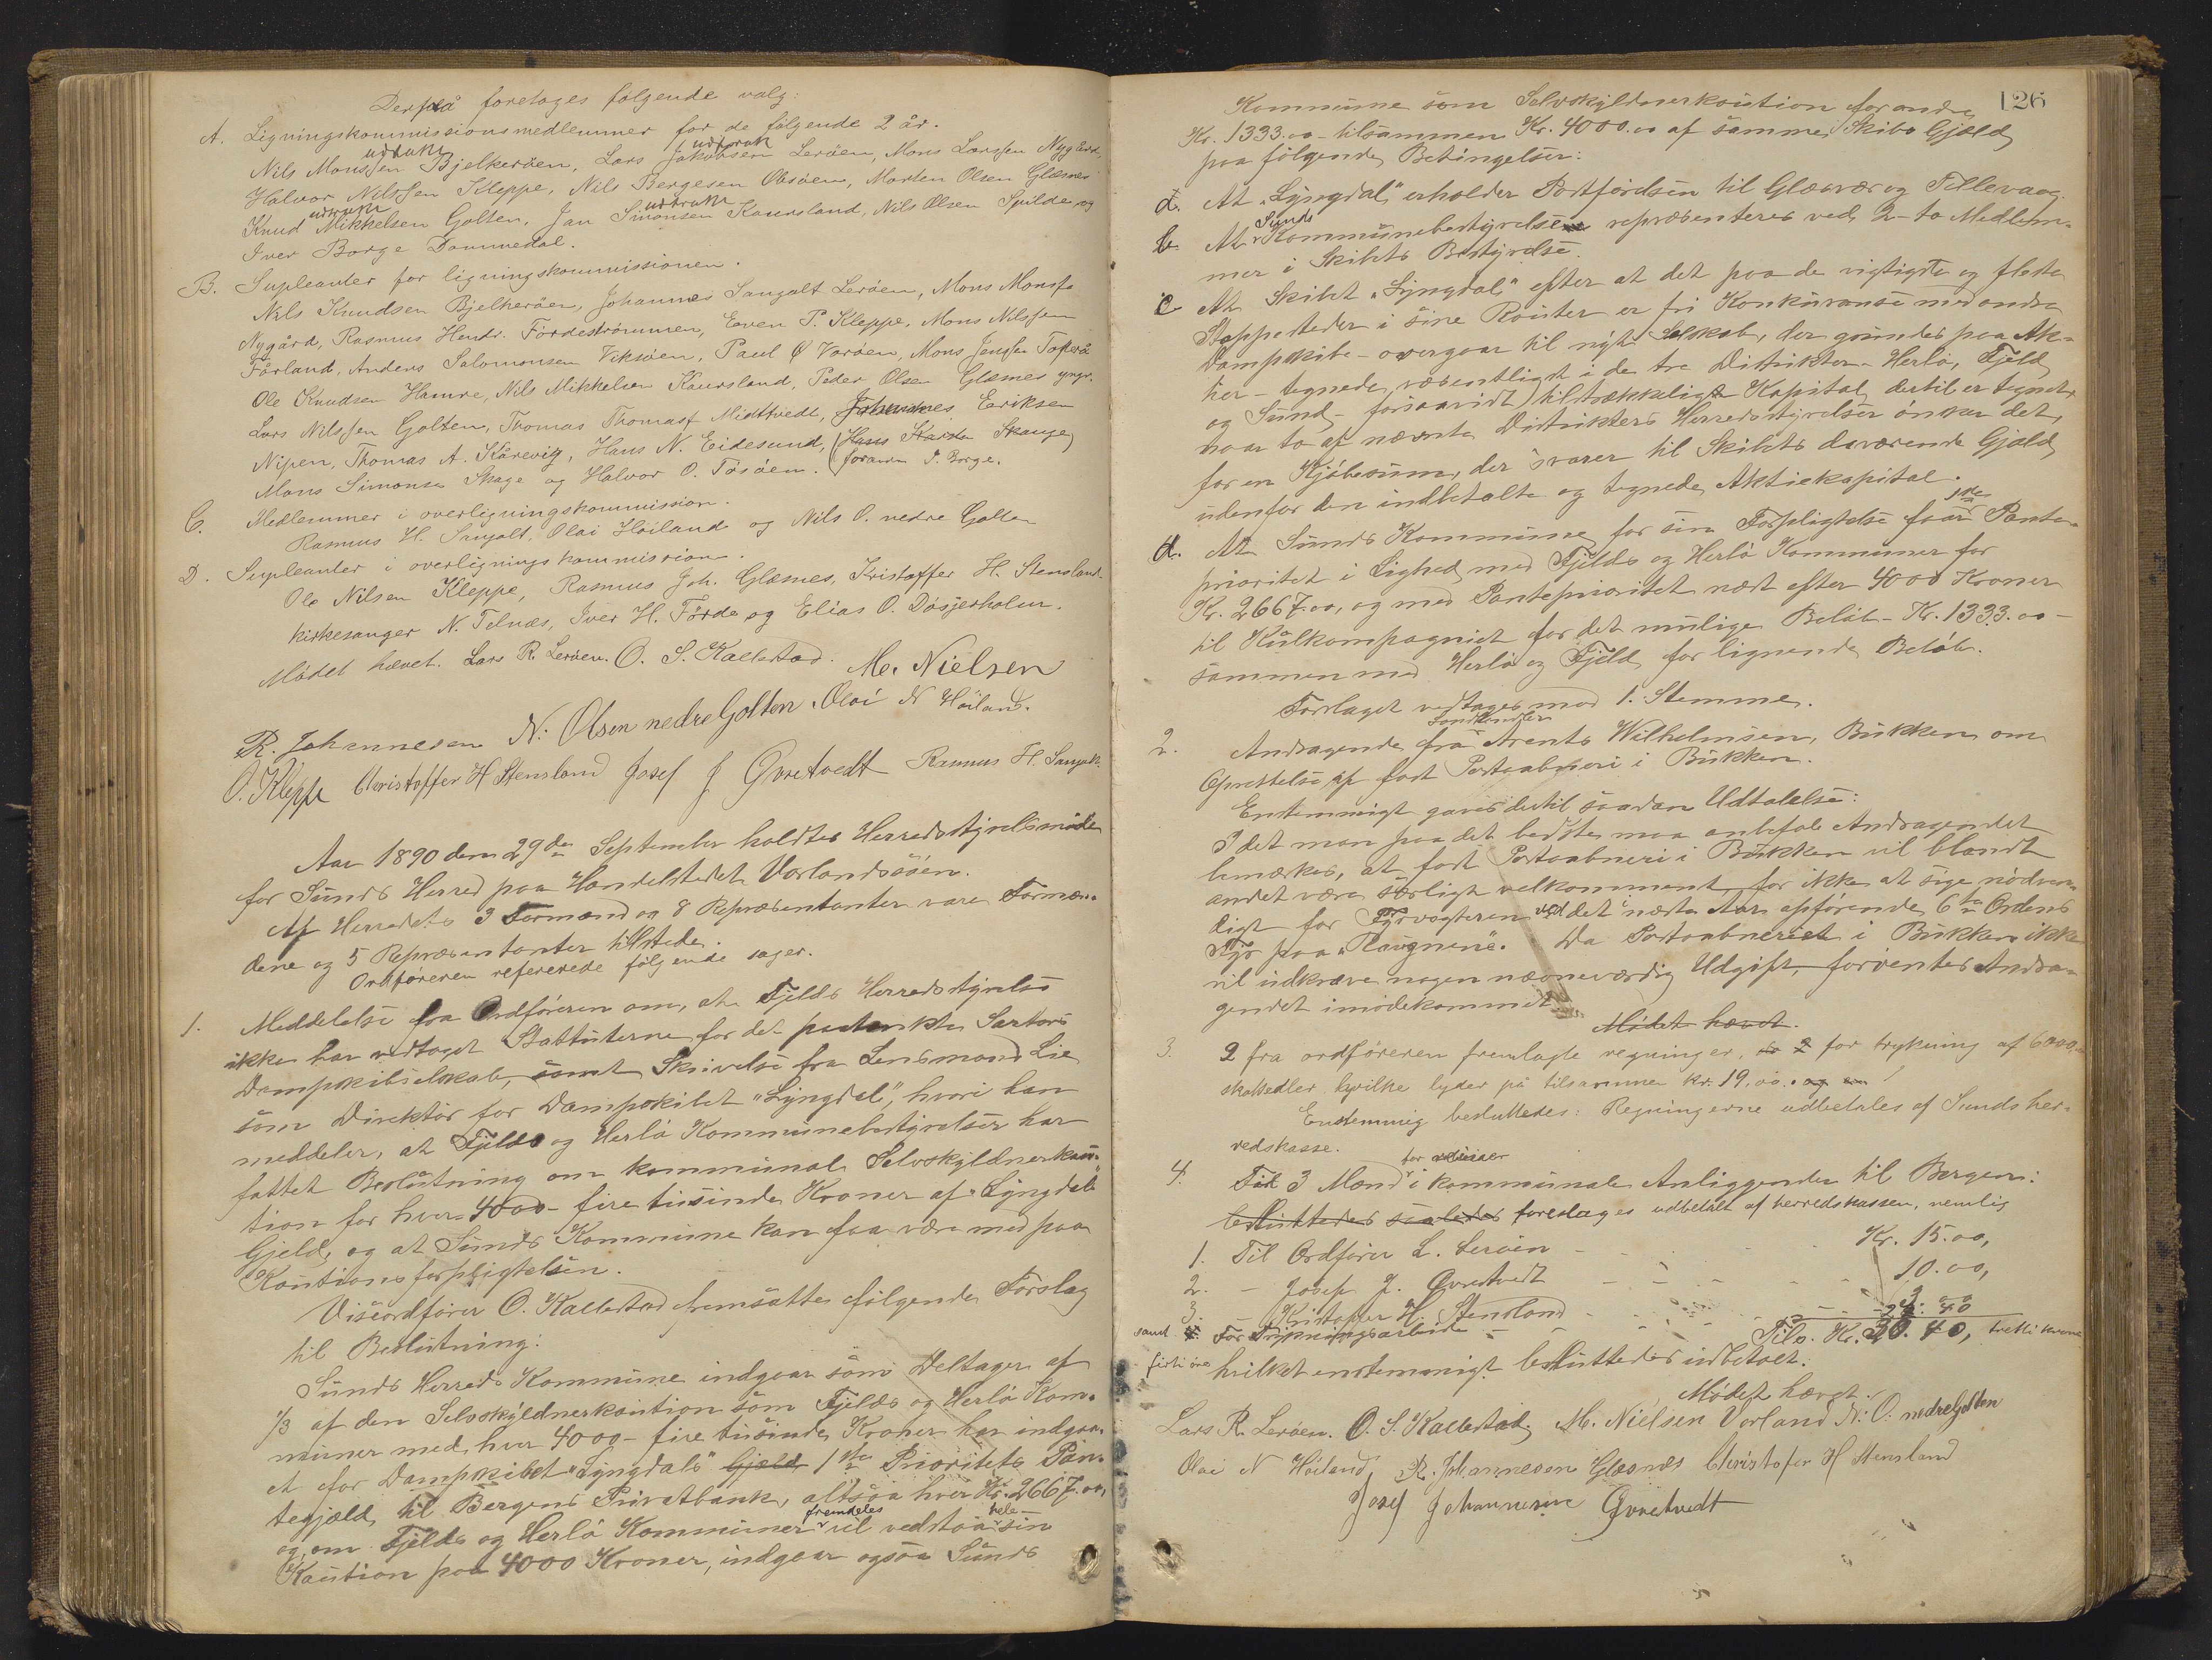 Derpå foretages følgende valg:
A. Ligningskommissionsmedlemmer for de følgende 2 år.
udtrukk udtruk
Nils Monssen Bjelkerøen, Lars Jakobsen Lerøen, Mons Larssen Nygård,
Halvor Nilssen Kleppe, Nils Bergesen Olsøen, Morten Olsen Glæsnes
udtrukk udtrukk
Knud Mikkelsen Golten, Jan Simonsen Kaursland, Nils Olsen Spilde og
Iver Borge Dommedal.
B. Supleanter for ligningskommissionen.
Nils Knudsen Bjelkerøen, Johannes Sangolt Lerøen, Mons Monss.
Nygård, Rasmus Hendr. Førdestrømmen, Even P. Kleppe, Mons Nilssen
Førland, Anders Salomonsen Viksøen, Paul Ø Vorøen, Mons Jenssen Toferå
Ole Knudsen Hamre, Nils Mikkelsen Kaursland, Peder Olsen Glæsnes yngr.
Lars Nilssen Golten, Thomas Thomass Midttvedt, Johannes Eriksen
Nipen, Thomas A. Kårevig, Hans N. Eidesund, (Hans Skage
Mons Simonsen Skage og Halvor O. Tøsøen. (foran P. Borge.
C. Medlemmer i overligningskommission.
Rasmus H. Sangolt, Olai Høiland og Nils O. nedre Golten
D. Supleanter i overligningskommission.
Ole Nilsen Kleppe, Rasmus Joh. Glæsnes, Kristoffer H. Stensland
kirkesanger N. Telnæs, Iver H. Førde og Elias O. Døsjerholm.
Mødet hævet. Lars R. Lerøen. O. S. Kallestad. M. Nielsen
R. Johannesen N. Olsen nedre Golten. Olai N Høiland.
O. Kleppe Christoffer H Stensland Josef J Gvretvedt Rasmus H. Sangolt.
Aar 1890 den 29de September holdtes Herredsstyrelsmøde
for Sunds Herred paa Handelstedet Vorlandsøsen.
Af Herredets 3 Formænd og 8 Repræsentanter vare Formæn-
dene og 5 Repræsentanter tilstede.
Ordføreren refererede følgende sager.
1. Meddelelse fra Ordføreren om, at Fjelds Herredsstyrelse
ikke har vedtaget Stattuterne for det paatænkte Sartors
Dampskibselskab, samt Skrivelse fra Lensmand Lie
som Direktør for Dampskibet "Lyngdal", hvori han
meddeler, at Fjelds og Herlø Kommunebestyrelser har
fattet Beslutning om kommunale Selvskyldnerkau-
tion for hver 4000 - fire tusinde Kroner af "Lyngdals"
Gjeld, og at Sunds Kommune kan faa være med paa
Kautionsforpligtelsen.
Viseordfører O. Kallestad fremsatte følgende Forslag
til Beslutning:
Sunds Herreds Kommune indgaar som Deltager af
1/3 af den Selvskyldnerkaution som Fjelds og Herlø Kom-
muner med hver 4000 - fire tusinde Kroner har indgaa-
et for Dampskibet "Lyngdals" Gjæld 1ste Prioritets Pan-
tegjæld til Bergens Privatbank, altsaa hver Kr. 2667.00,
fremdeles hele
og om Fjelds og Herlø Kommuner vil vedstaa sin
Kaution paa 4000 Kroner, indgaar ogsaa Sunds
126
Kommune som Selvskyldnerkaution for andre
Kr. 1333.00 - tilsammen Kr. 4000.00 af samme Skibs Gjæld
paa følgende Betingelser:
a. At "Lyngdal" erholder Postførelsen til Glæsvær og Tellevaag.
Sunds
b. At Kommunebestyrelse repræsenteres ved 2 - to Medlem-
mer i Skibets Bestyrelse.
c At Skibet "Lyngdal" efter at det paa de vigtigste og fleste
Stoppesteder i sine Router er fri Konkuranse med andre
Dampskibe - overgaar til nyt Selskab, der grundes paa Ak-
tier - tegnede væsentligst i de tre Distrikter - Herlø, Fjeld
og Sund - forsaavidt tilstrækkeligt Kapital dertil er tegnet,
naar to af nævnte Distrikters Herredsstyrelser ønsker det,
for en Kjøbesum, der svarer til Skibets daværende Gjæld
udenfor den indbetalte og tegnede Aktiekapital.
1ste
d. At Sunds Kommune for sin Forpligtelse faar Pante-
prioritet i Lighed med Fjelds og Herlø Kommuner for
Kr. 2667.00, og med Panteprioritet næst efter 4000 Kroner
til Kulkompagniet for det mulige Beløb - Kr. 1333.00 -
sammen med Herlø og Fjeld for lignende Beløb.
Forslaget vedtages mod 1. Stemme.
Landhandler
2. Andragende fra Arents Wilhelmsen, Bukken om
Oprettelse af fast Postaabneri i Bukken.
Enstemmigt gaves dertil saadan Udtalelse:
I det man paa det bedste maa anbefale Andragendet
bemærkes, at fast Postaabneri i Bukken vil blandt
andet være særligt velkomment, for ikke at sige nødven-
digt for Fyrvogteren ved det i næste Aar opførende 6te Ordens
Fyr paa "Raugnene". Da Postaabneriet i Bukken ikke
vil indkræve nogen nævneværdig Udgift, forventes Andra-
gendet imødekommet.
Mødet hævet.
3. 2 fra ordføreren fremlagte regninger, for trykning af 6000
skattedler hvilke lyder på tilsammen kr. 19.00.
Enstemmig besluttedes: Regningerne udbetales af Sunds her-
redskasse.
4. Til 3 Mænd for reiser i kommunale Anliggender til Bergen:
besluttedes saaledes foreslages udbetalt af herredskassen, nemlig
1. Til Ordfører L. Lerøen - - - Kr. 15.00,
2. - Josef J. Gvretvedt - - - - 10.00,
3. - Kristoffer H. Stensland - - - -
samt 4. For Skrivningsarbeide - - - 2. 40
Tils. Kr. 30. 40, tretti kroner
firti øre hvilket enstemmigt besluttedes udbetalt.
Mødet hævet.
Lars R. Lerøen. O. S. Kallestad. M. Nielsen Vorland N. O. nedre Golten
Olai N Høiland R. Johannesen Glæsnes Christofer H Stensland
Josef Johannesen Gvretvedt